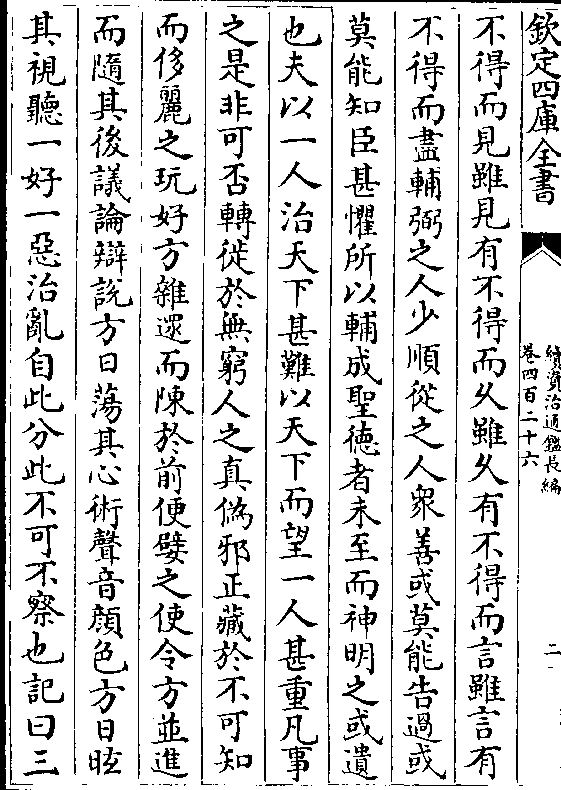 欽定四庫全書
續資治通鑑長編
卷四百二十六
二
不得而見雖見有不得而久雖久有不得而言雖言有
不得而盡輔弼之人少順從之人衆善或莫能告過或
莫能知臣甚懼所以輔成聖徳者未至而神明之或遺
也夫以一人治天下甚難以天下而望一人甚重凡事
之是非可否轉徙於無窮人之真偽邪正藏於不可知
而侈麗之玩好方雜還而陳於前便嬖之使令方並進
而隨其後議論辯説方日蕩其心術聲音顔色方日眩
其視聽一好一惡治亂自此分此不可不察也記曰三